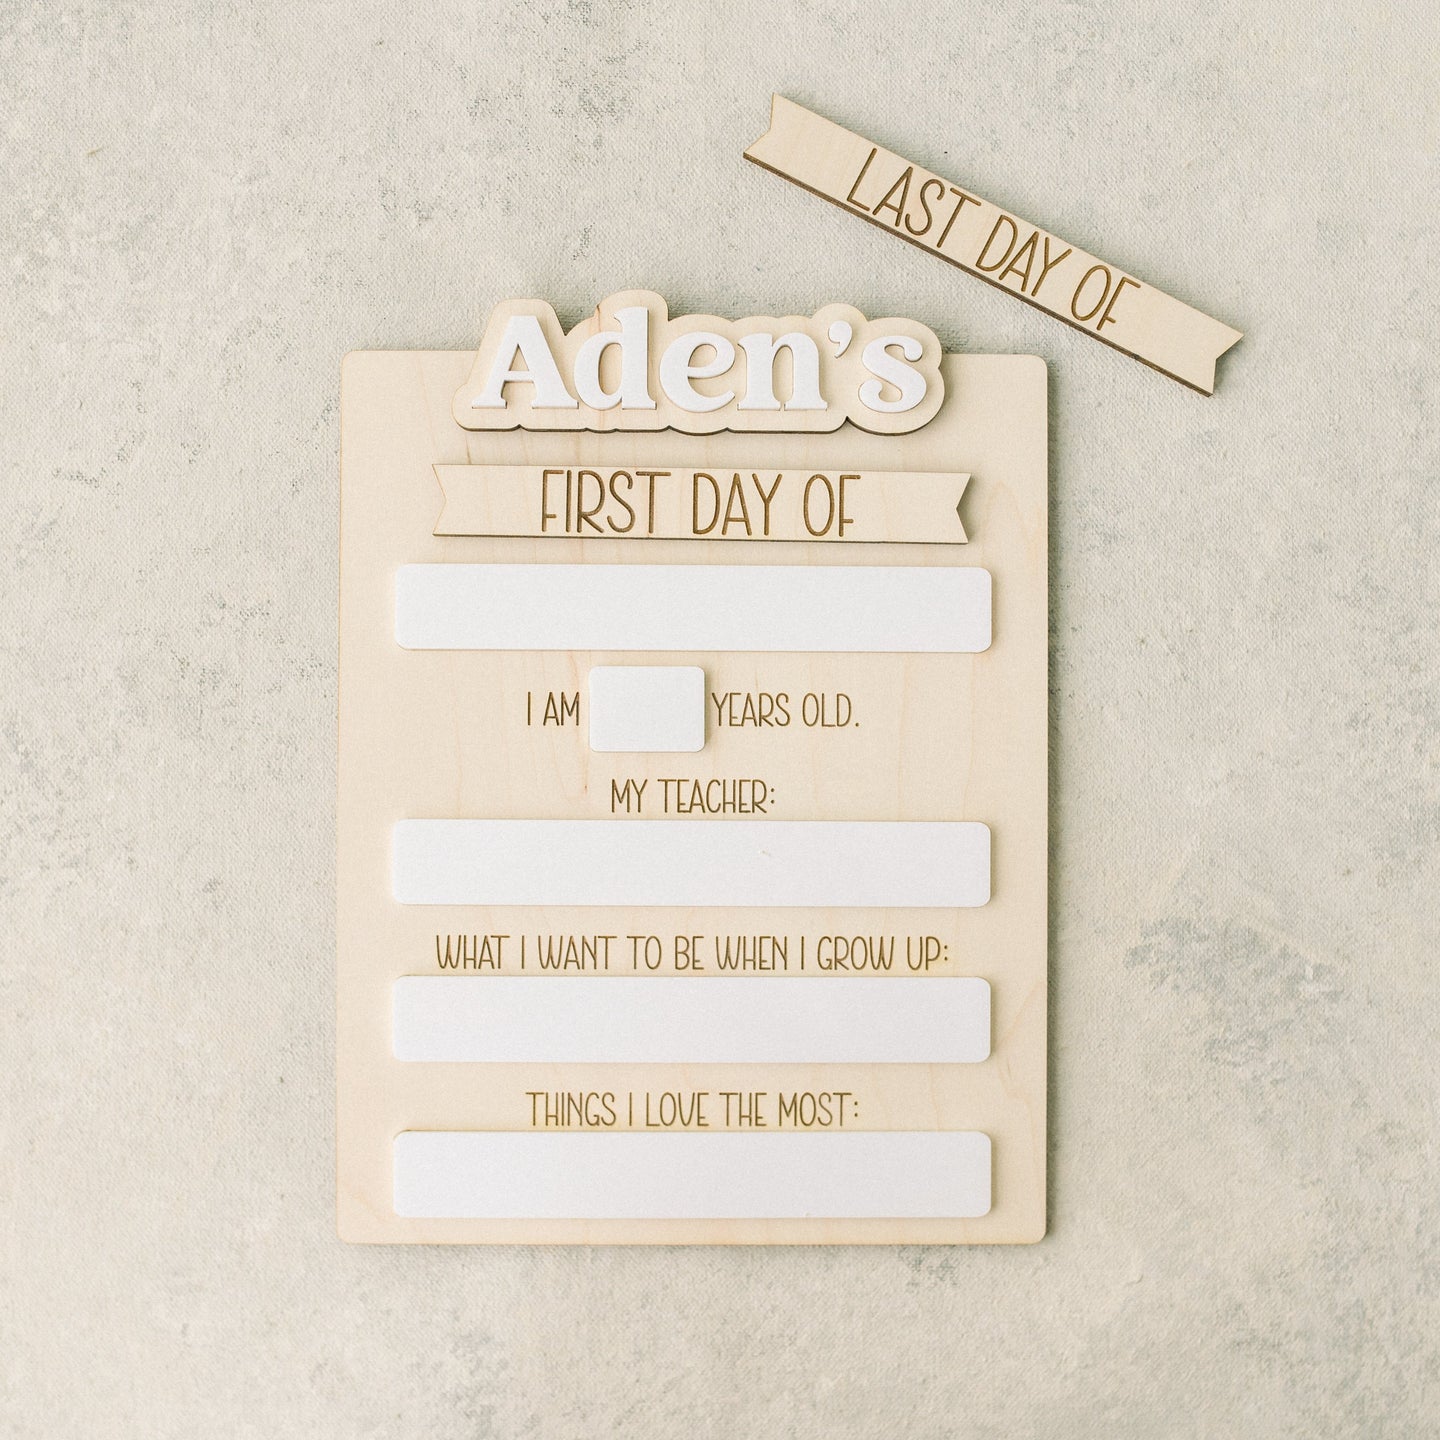 LAST DAY OF
Aden's
FIRST DAY OF
I AM YEARS OLD.
MY TEACHER:
WHAT I WANT TO BE WHEN I GROW UP:
THINGS I LOVE THE MOST: